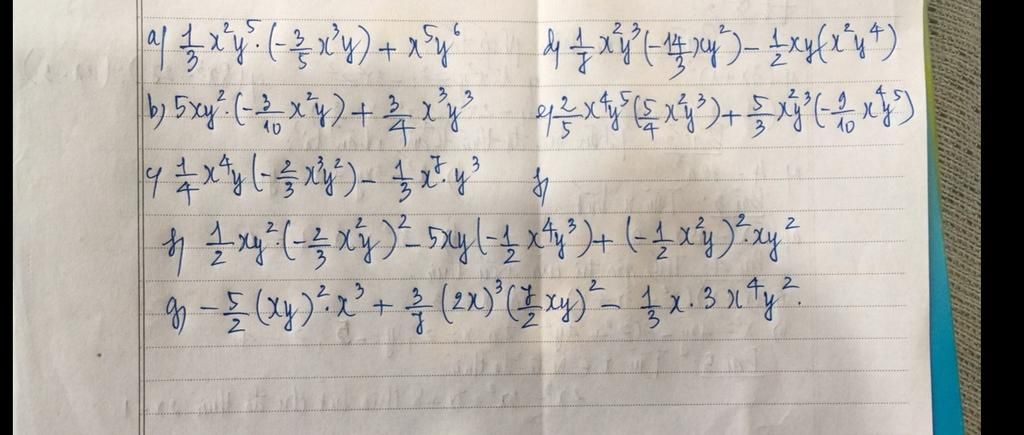 a) 1/3 x²y⁵.(-3/5 x³y) + x⁵y⁶
d) 1/7 x²y³(-14/3 xy²) - 1/2 xy(x²y⁴)
b) 5xy².(-3/10 x²y) + 3/4 x³y³
e) 2/5 x⁴y⁵(5/4 x²y³) + 5/3 x²y³(-9/10 x⁴y⁵)
c) 1/4 x⁴y(-2/3 x³y²) - 1/3 x⁷.y³
f)
f) 1/2 xy².(-2/3 x²y)² - 5xy(-1/2 x⁴y³) + (-1/2 x²y)².xy²
g) -5/2 (xy)².x³ + 3/7 (2x)³(7/2 xy)² - 1/3 x.3x⁴y².